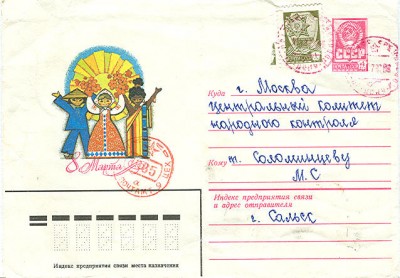 СССР
8 Марта
Куда
г. Москва
центральный комитет
народного контроля
Кому
т. Соломинцеву
М.С
Индекс предприятия связи
и адрес отправителя
г. Сальск
Индекс предприятия связи места назначения